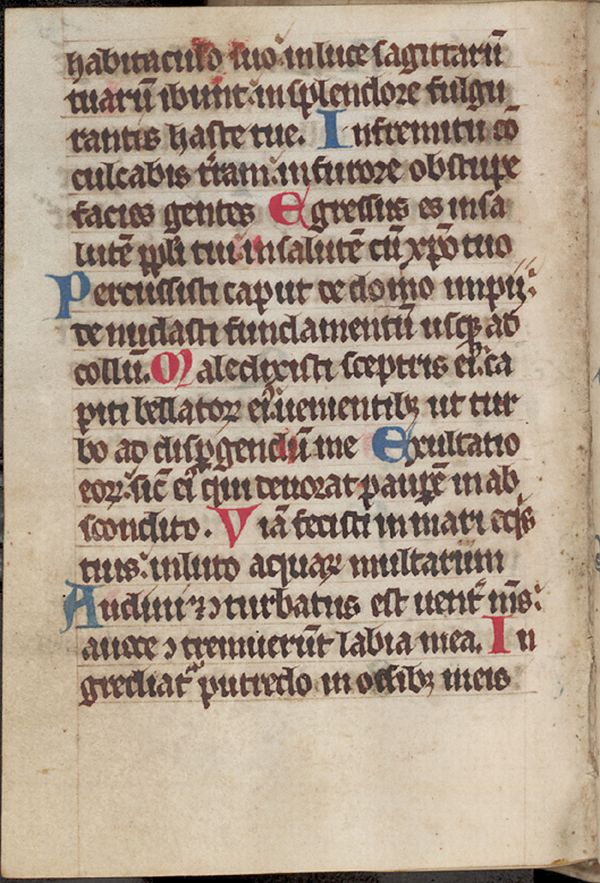 habitaculo suo: in luce sagittarū
tuarū ibunt: in splendore fulgu
rantis haste tue. In fremitu cō
culcabis tr̄am: in furore obstupe
facies gentes Egressus es in sa
lutē ppl̄i tui: in salutē cū xp̄o tuo
Percussisti caput de domo impii:
denudasti fundamentū usq; ad
collū. Maledixisti sceptris ei: ca
piti bellatoꝝ ei: uenientibꝫ ut tur
bo ad disꝑgendū me Exultatio
eoꝝ: sic̄ ei qui deuorat pauꝑē in ab
scondito. Viā fecisti in mari eqis
tuis: in luto aquaꝝ multarum
Audiui ⁊ ↄturbatus est uent̄ m̄s:
a uoce ↄtremuerūt labia mea. In
grediat̄ putredo in ossibꝫ meis